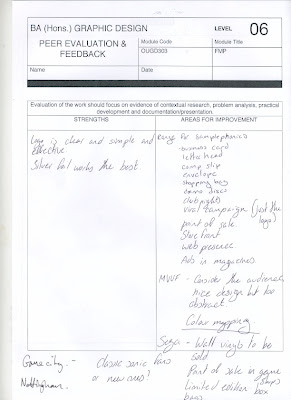 BA (Hons.) GRAPHIC DESIGN
LEVEL 06
PEER EVALUATION &
FEEDBACK
Module Code
Module Title
OUGD303
FMP
Name
Date
Evaluation of the work should focus on evidence of contextual research, problem analysis, practical
development and documentation/presentation.
STRENGTHS
AREAS FOR IMPROVEMENT
Logo is clear and simple and
effective
Silver foil works the best
range for samplephonics
business card
letter head
comp slip
envelope
shopping bag
demo discs
club nights
Viral campaign (just the
logo)
point of sale
Store front
web presence
Ads in magazines
- Consider the audience,
nice design but too
abstract
Colour mapping
Sega - Wall vinyls to be
sold
Point of sale in game
shops
limited edition box
Game city -
Nottingham.
classic sonic fans
or new ones?